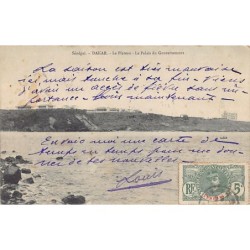 Sénégal - DAKAR - Le Plateau - Le Palais du Gouvernement
La saison est très mauvaise
ici mais touche à sa fin - Viens
d'avoir un accès de fièvre sans im-
portance - bien maintenant -
Envoie moi une carte de
temps en temps pour me don-
ner de tes nouvelles
Louis
RF
5